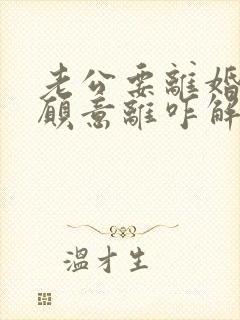 老公要離婚
願意離咋解
溫才生